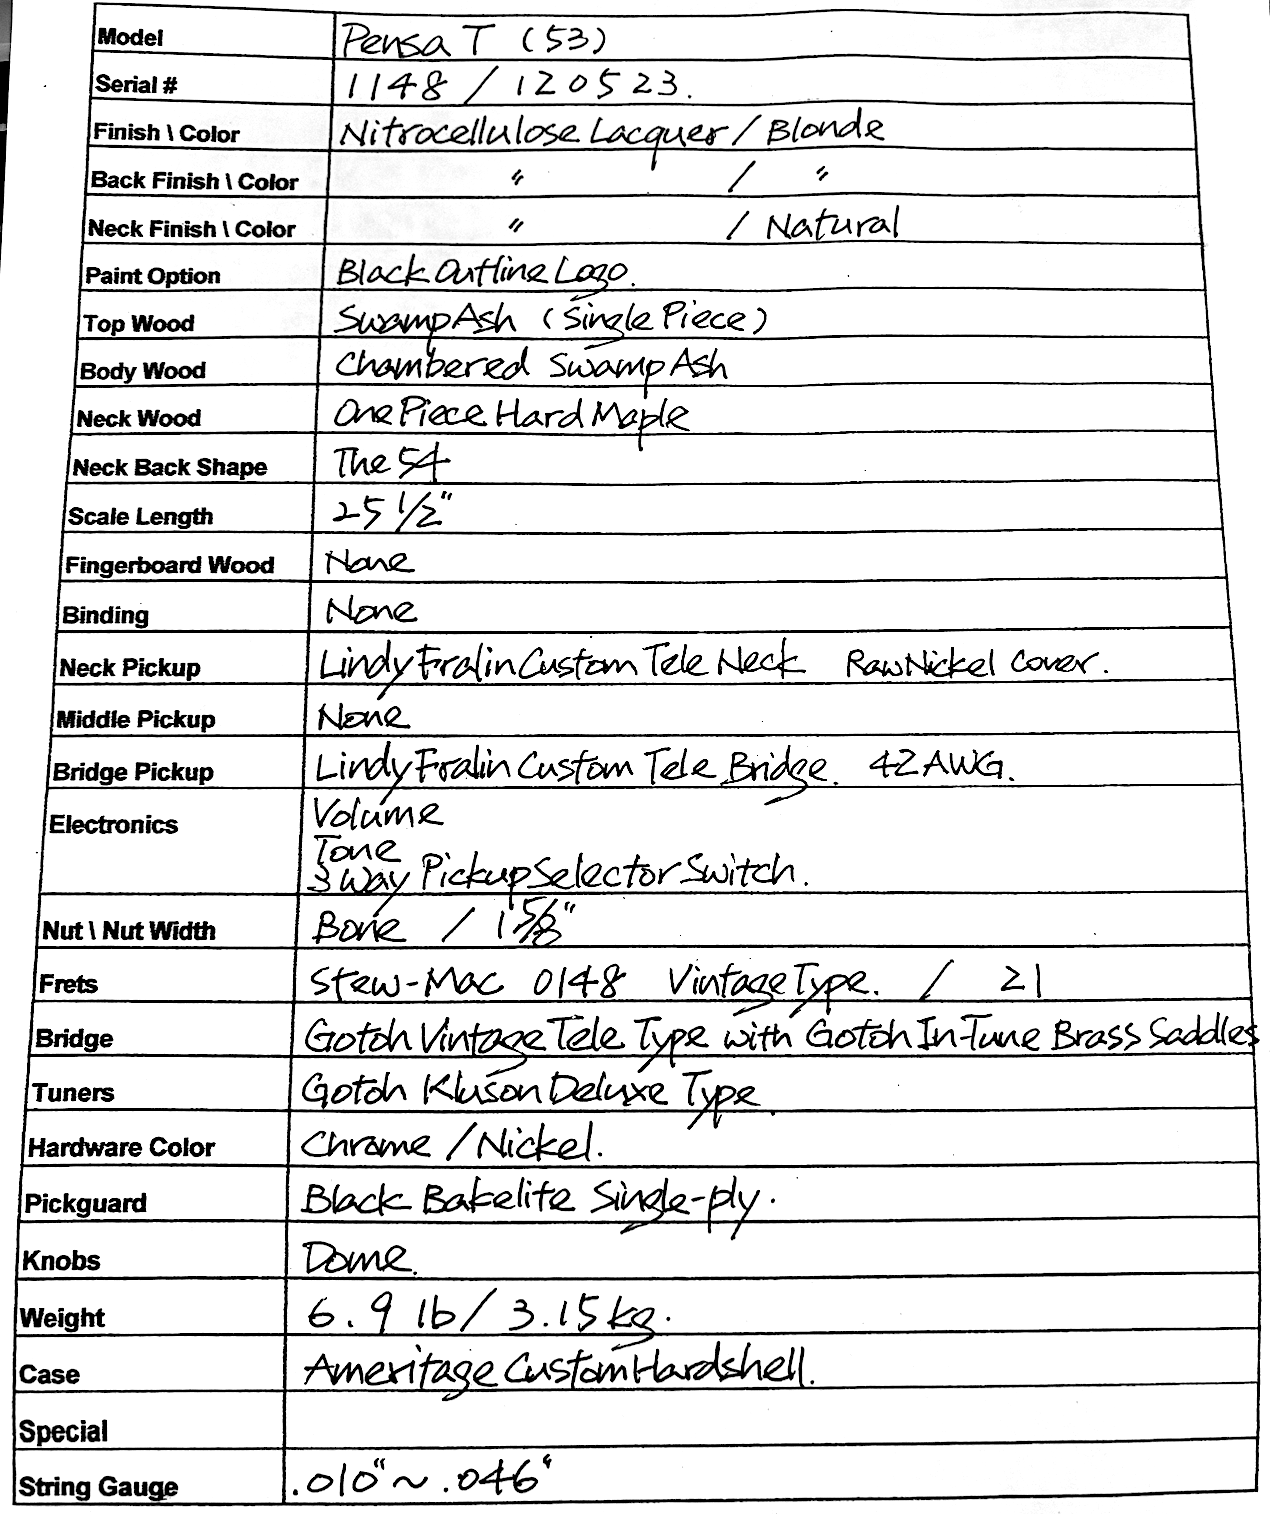 Model Pensa T (53)
Serial # 1148 / 120523.
Finish \ Color Nitrocellulose Lacquer / Blonde
Back Finish \ Color " / "
Neck Finish \ Color " / Natural
Paint Option Black Outline Logo.
Top Wood Swamp Ash (Single Piece)
Body Wood Chambered Swamp Ash
Neck Wood One Piece Hard Maple
Neck Back Shape The 54
Scale Length 25 1/2"
Fingerboard Wood None
Binding None
Neck Pickup Lindy Fralin Custom Tele Neck Raw Nickel Cover.
Middle Pickup None
Bridge Pickup Lindy Fralin Custom Tele Bridge. 42 AWG.
Electronics Volume
Tone
3 Way Pickup Selector Switch.
Nut \ Nut Width Bone / 1 5/8"
Frets Stew-Mac 0148 Vintage Type. / 21
Bridge Gotoh Vintage Tele Type with Gotoh In-Tune Brass Saddles
Tuners Gotoh Kluson Deluxe Type.
Hardware Color Chrome / Nickel.
Pickguard Black Bakelite Single-ply.
Knobs Dome.
Weight 6.9 lb / 3.15 kg.
Case Ameritage Custom Hardshell.
Special
String Gauge .010" ~ .046"